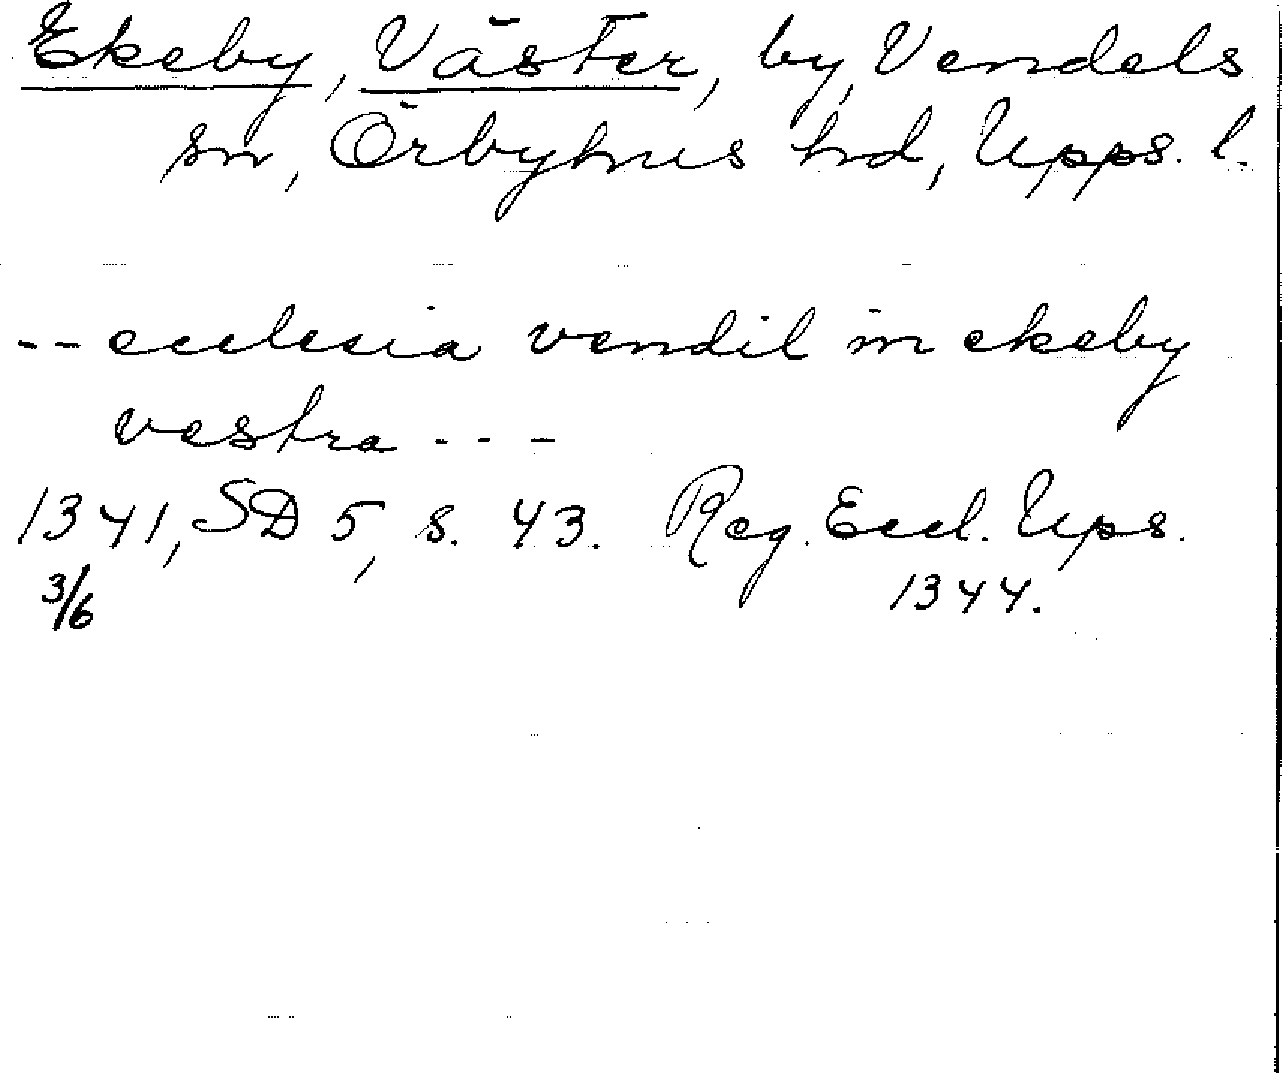 Ekeby, Väster, by, Vendels
sn, Örbyhus hd, Upps. l.
-- ecclesia vendil in ekeby
vestra ---
1341, SD 5, s. 43. Reg. Eccl. Ups.
3/6 1344.